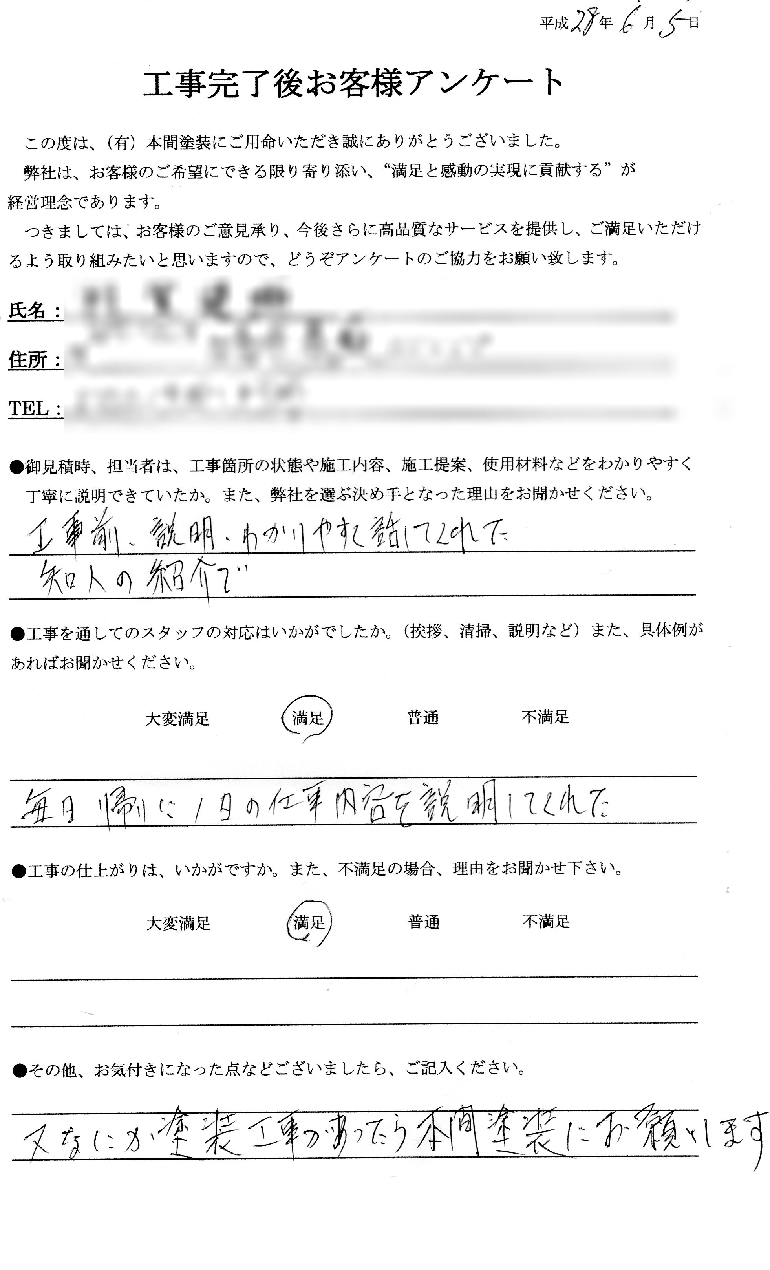 平成28年6月5日
工事完了後お客様アンケート
この度は、(有)本間塗装にご用命いただき誠にありがとうございました。
弊社は、お客様のご希望にできる限り寄り添い、“満足と感動の実現に貢献する”が
経営理念であります。
つきましては、お客様のご意見承り、今後さらに高品質なサービスを提供し、ご満足いただけ
るよう取り組みたいと思いますので、どうぞアンケートのご協力をお願い致します。
氏名：
住所：
TEL：
●御見積時、担当者は、工事箇所の状態や施工内容、施工提案、使用材料などをわかりやすく
丁寧に説明できていたか。また、弊社を選ぶ決め手となった理由をお聞かせください。
工事前、説明、わかりやすく話してくれた
知人の紹介で
●工事を通してのスタッフの対応はいかがでしたか。（挨拶、清掃、説明など）また、具体例が
あればお聞かせください。
大変満足 満足 普通 不満足
毎日帰りに1日の仕事内容を説明してくれた
●工事の仕上がりは、いかがですか。また、不満足の場合、理由をお聞かせ下さい。
大変満足 満足 普通 不満足
●その他、お気付きになった点などございましたら、ご記入ください。
又なにか塗装工事があったら本間塗装にお願いします